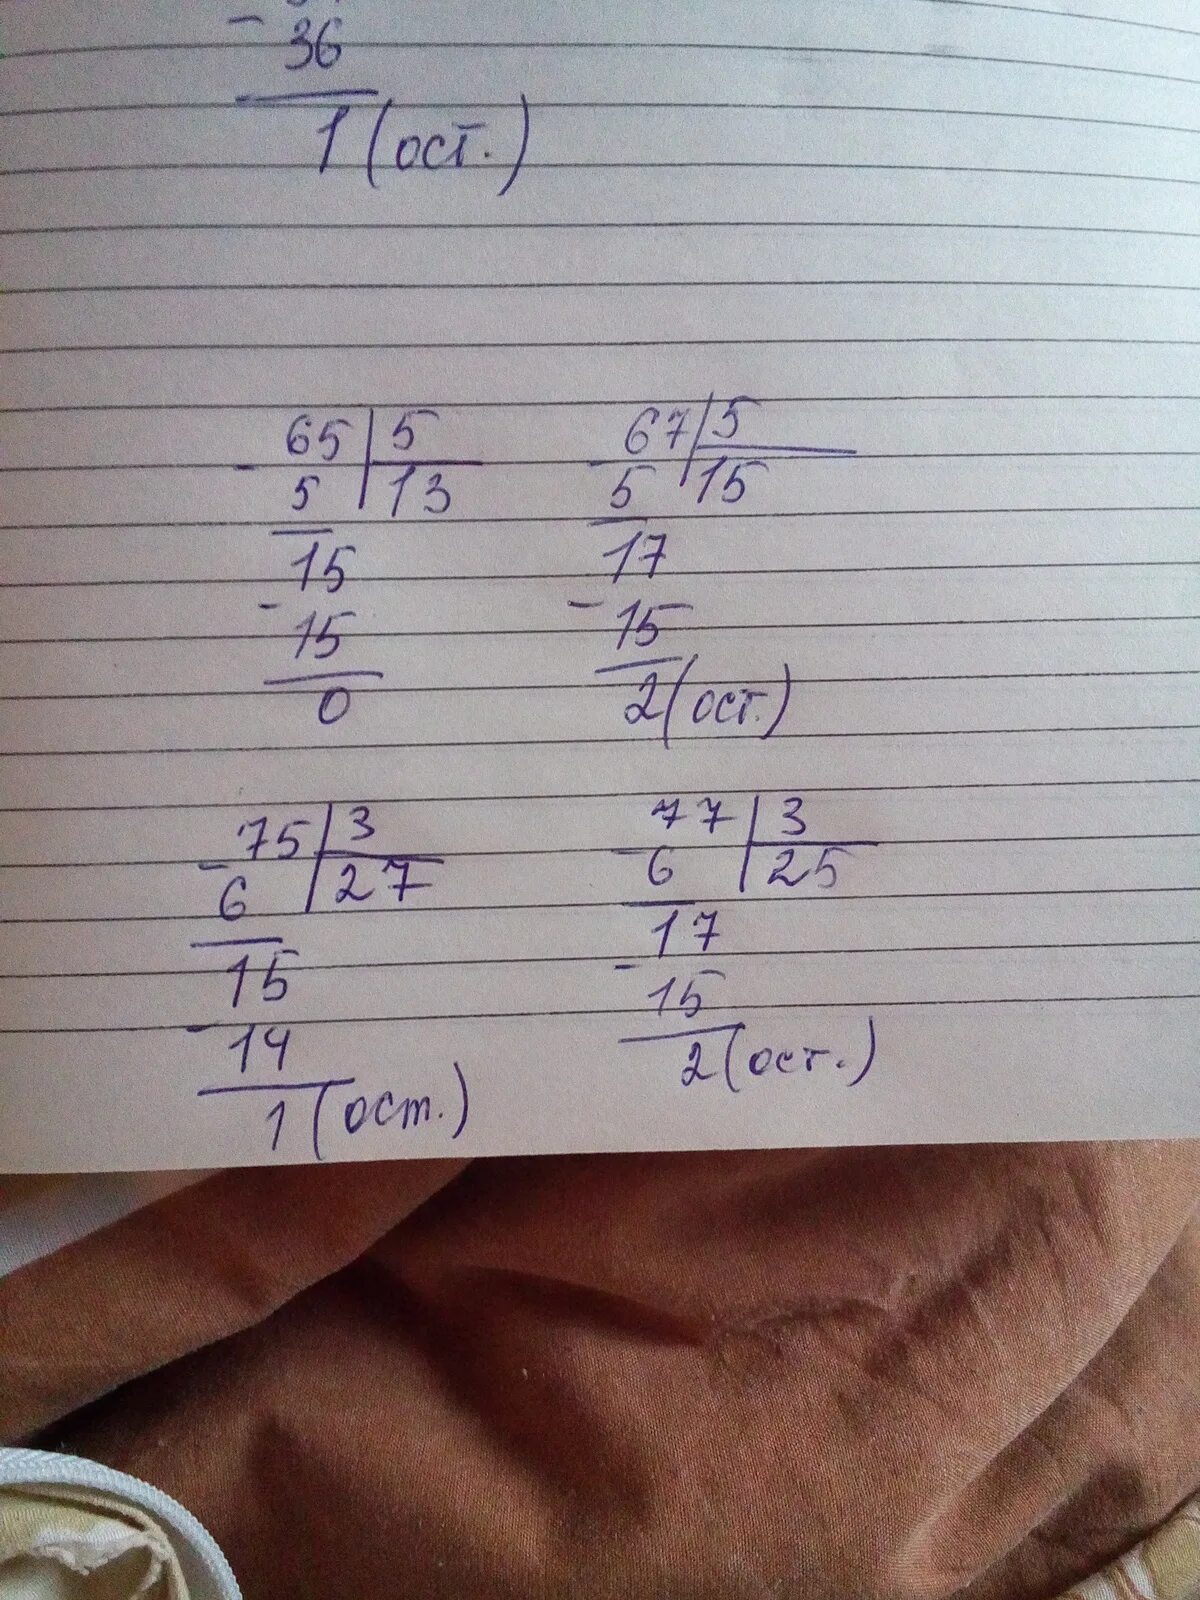 - 36
1 (ост.)
65 | 5 67 | 5
- 5 | 13 - 5 | 15
15 17
- 15 - 15
0 2 (ост.)
75 | 3 77 | 3
- 6 | 27 - 6 | 25
15 17
- 14 - 15
1 (ост.) 2 (ост.)